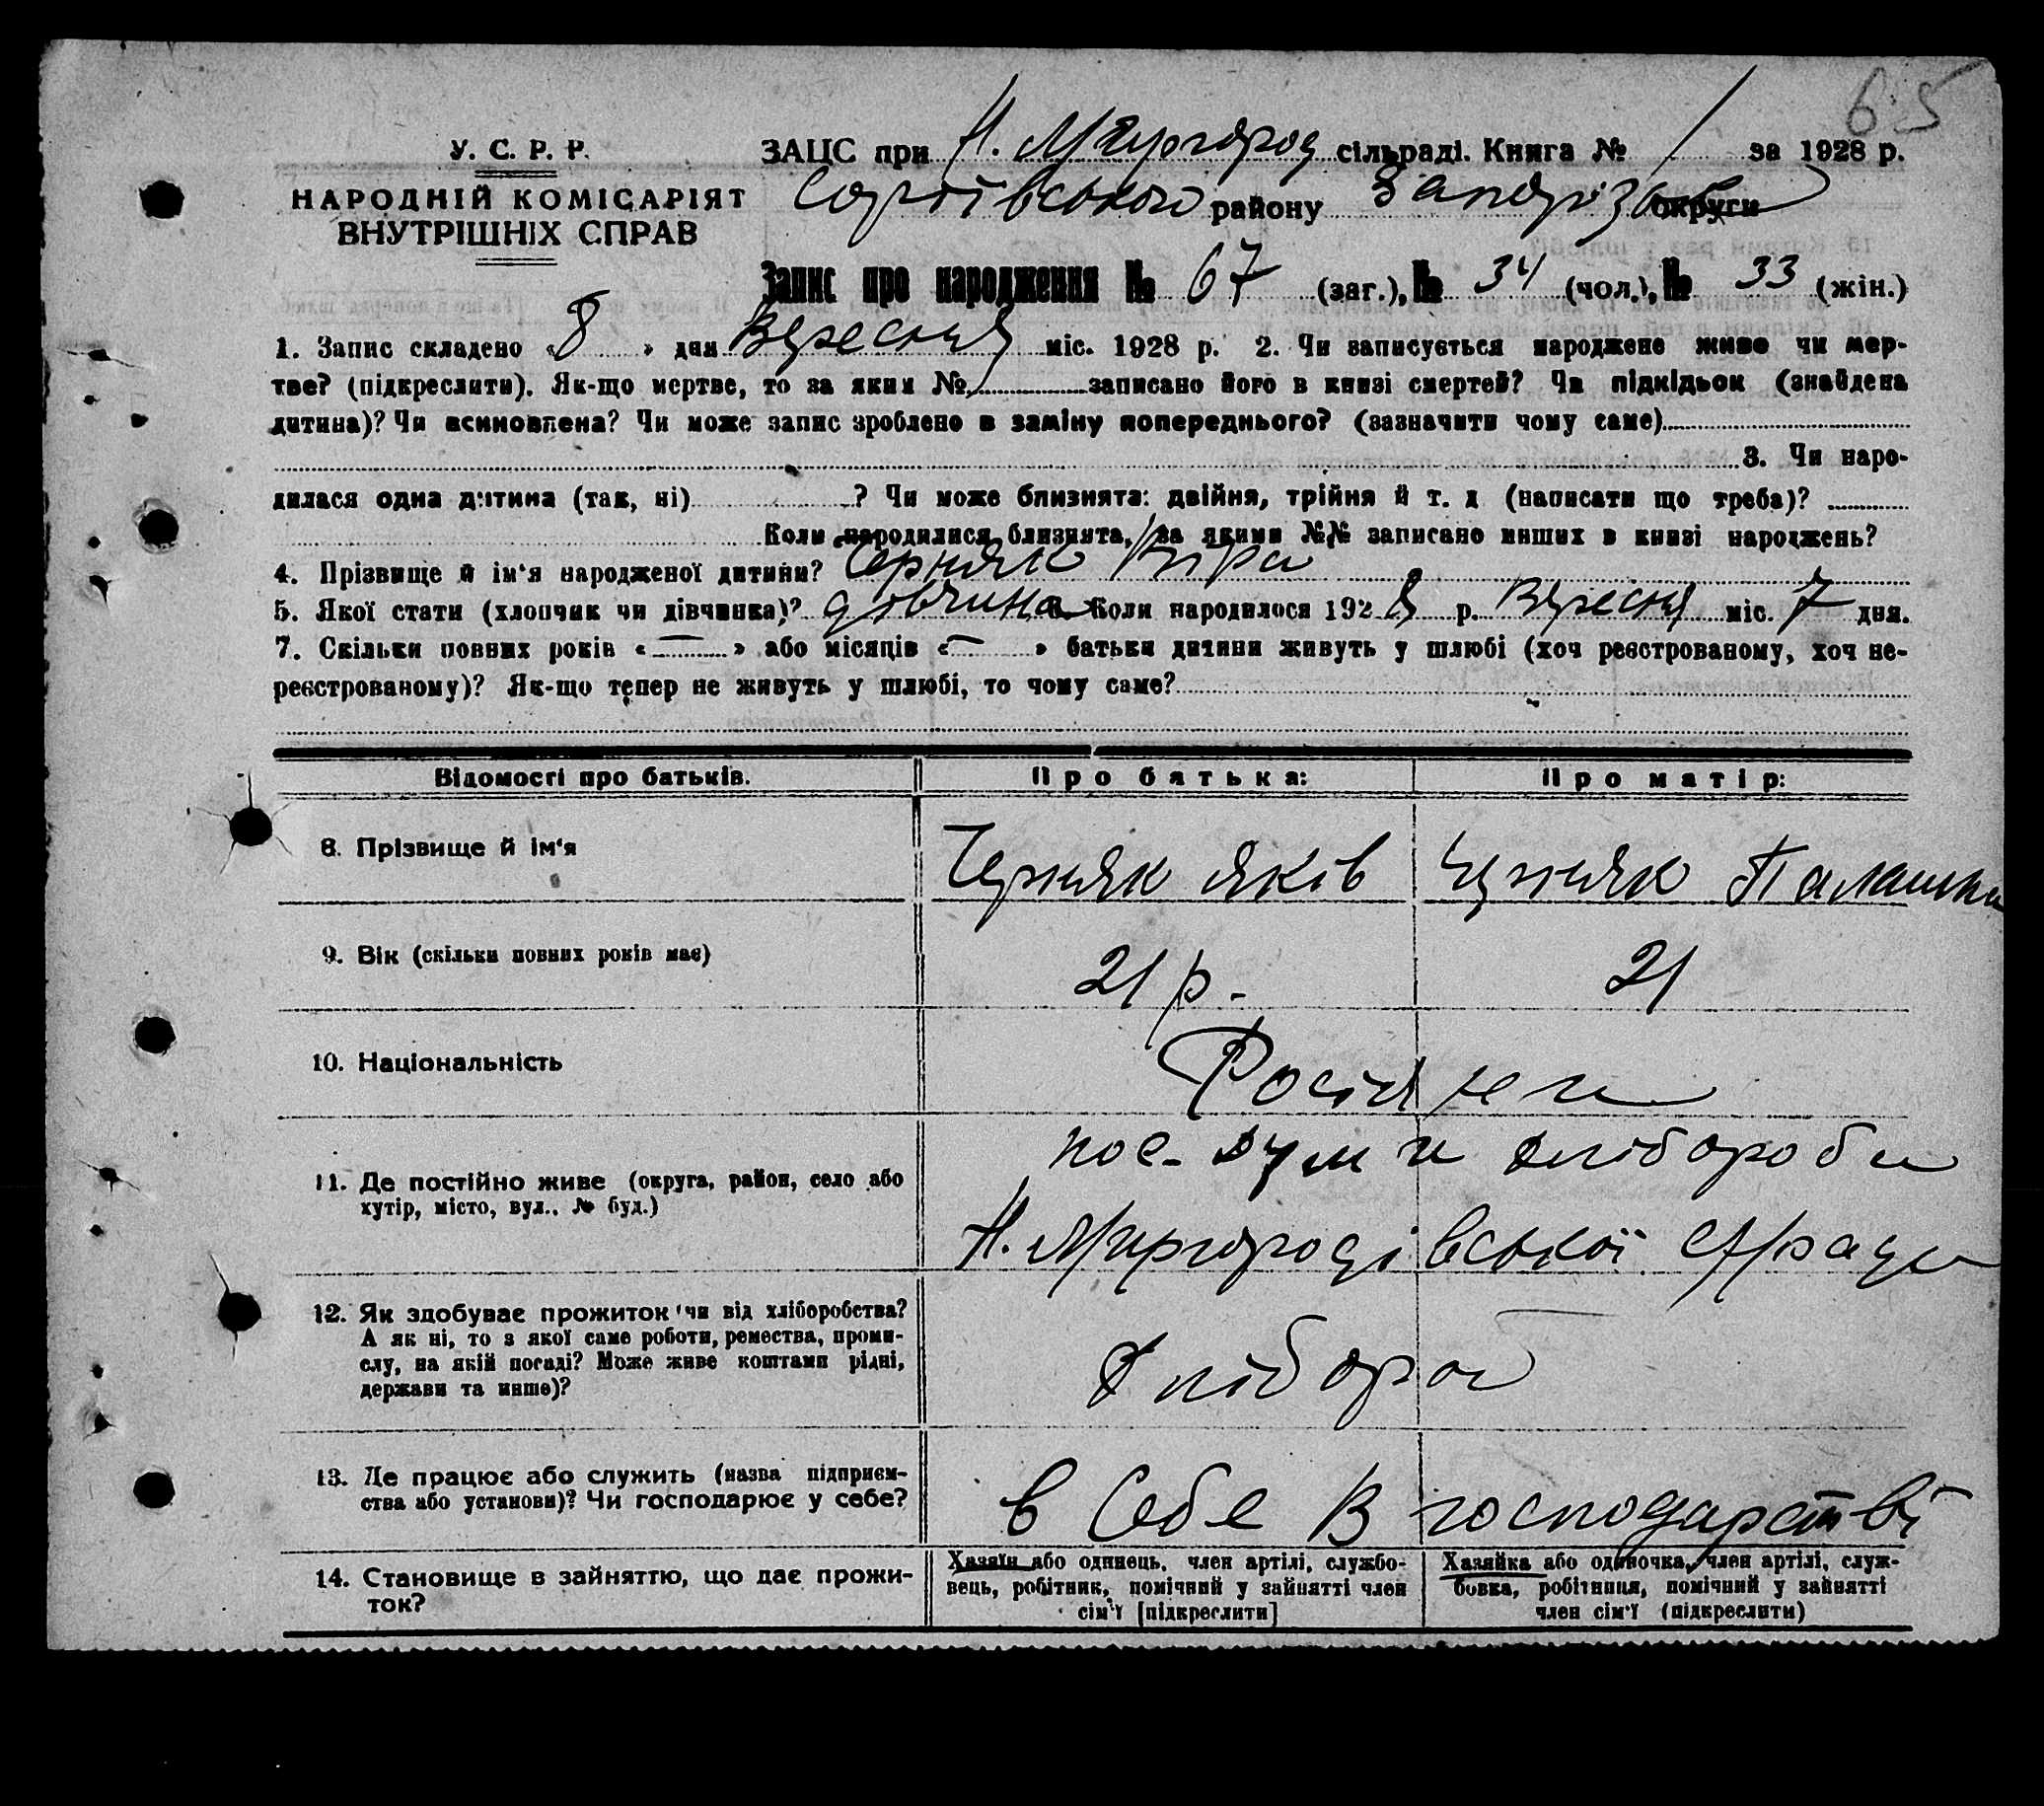 65
У. С. Р. Р.
НАРОДНІЙ КОМІСАРІЯТ
ВНУТРІШНІХ СПРАВ
ЗАЦС при Н. Миргород сільраді. Книга № 1 за 1928 р.
Софіївського району Запоріз округи
Запис про народження № 67 (заг.), № 34 (чол.), № 33 (жін.)
1. Запис складено «8» дня Вересня міс. 1928 р. 2. Чи записується народжене живе чи мер-
тве? (підкреслити). Як-що мертве, то за яким № записано його в книзі смертей? Чи підкідьок (знайдена
дитина)? Чи всиновлена? Чи може запис зроблено в заміну попереднього? (зазначити чому саме)
3. Чи наро-
дилася одна дитина (так, ні) ? Чи може близнята: двійня, трійня й т. д (написати що треба)?
Коли народилися близнята, за якими №№ записано инших в книзі народжень?
4. Прізвище й ім'я народженої дитини? Черняк Віра
5. Якої стати (хлопчик чи дівчинка)? дівчина 6. Коли народилося 1928 р. Вересня міс. 7 дня.
7. Скільки повних років «—» або місяців «—» батьки дитини живуть у шлюбі (хоч реєстрованому, хоч не-
реєстрованому)? Як-що тепер не живуть у шлюбі, то чому саме?
Відомості про батьків. Про батька: Про матір:
8. Прізвище й ім'я Черняк Яків Черняк Палашка
9. Вік (скільки повних років має) 21 р. 21
10. Національність Росіяни
11. Де постійно живе (округа, район, село або
хутір, місто, вул., № буд.)
пос. Думи Хлібороби
Н. Миргородівської с/ради
12. Як здобуває прожиток чи від хліборобства?
А як ні, то з якої саме роботи, ремества, проми-
слу, на якій посаді? Може живе коштами рідні,
держави та инше)?
Хлібороб
13. Де працює або служить (назва підприєм-
ства або установи)? Чи господарює у себе?
в Себе В господарстві
14. Становище в зайняттю, що дає прожи-
ток?
Хазяїн або одинець, член артілі, службо-
вець, робітник, помічний у зайнятті член
сім'ї [підкреслити]
Хазяйка або одиночка, член артілі, служ-
бовка, робітниця, помічний у зайнятті
член сім'ї (підкреслити)